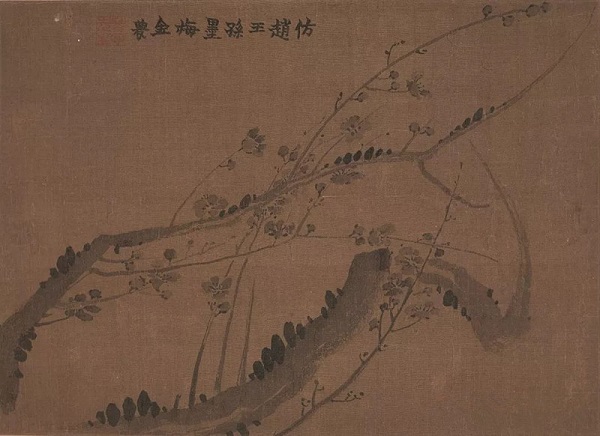 仿趙王孫墨梅金農